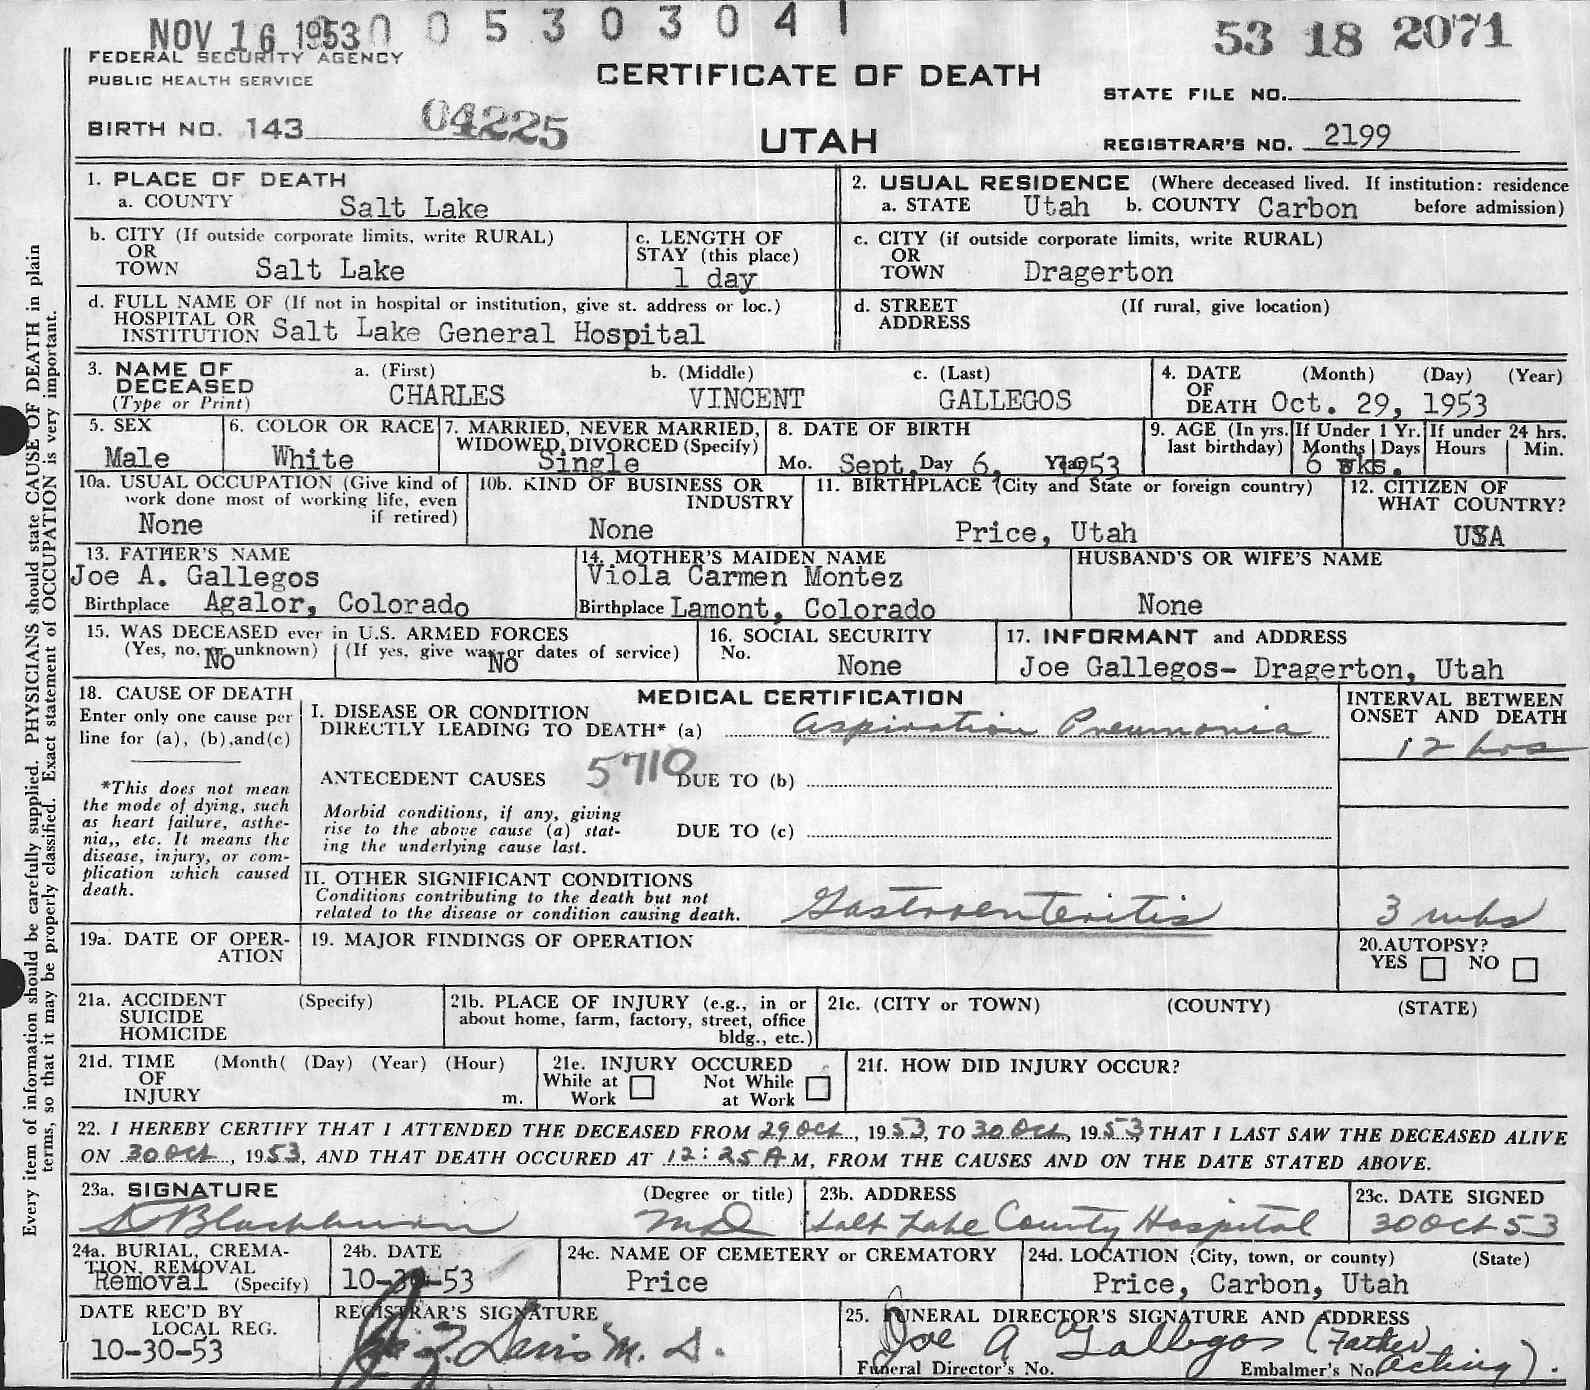 NOV 16 1953 0 0 5 3 0 3 0 4 1
53 18 2071
FEDERAL SECURITY AGENCY
PUBLIC HEALTH SERVICE
CERTIFICATE OF DEATH
STATE FILE NO.
BIRTH NO. 143 04225
UTAH
REGISTRAR'S NO. 2199
Every item of information should be carefully supplied. PHYSICIANS should state CAUSE OF DEATH in plain
terms, so that it may be properly classified. Exact statement of OCCUPATION is very important.
1. PLACE OF DEATH
a. COUNTY Salt Lake
2. USUAL RESIDENCE (Where deceased lived. If institution: residence
a. STATE Utah b. COUNTY Carbon before admission)
b. CITY (If outside corporate limits, write RURAL)
OR
TOWN Salt Lake
c. LENGTH OF
STAY (this place)
1 day
c. CITY (if outside corporate limits, write RURAL)
OR
TOWN Dragerton
d. FULL NAME OF (If not in hospital or institution, give st. address or loc.)
HOSPITAL OR
INSTITUTION Salt Lake General Hospital
d. STREET (If rural, give location)
ADDRESS
3. NAME OF
DECEASED
(Type or Print)
a. (First)
CHARLES
b. (Middle)
VINCENT
c. (Last)
GALLEGOS
4. DATE (Month) (Day) (Year)
OF
DEATH Oct. 29, 1953
5. SEX
Male
6. COLOR OR RACE
White
7. MARRIED, NEVER MARRIED,
WIDOWED, DIVORCED (Specify)
Single
8. DATE OF BIRTH
Mo. Sept. Day 6, Year 1953
9. AGE (In yrs.
last birthday)
If Under 1 Yr.
Months Days
6 wks.
If under 24 hrs.
Hours Min.
10a. USUAL OCCUPATION (Give kind of
work done most of working life, even
if retired)
None
10b. KIND OF BUSINESS OR
INDUSTRY
None
11. BIRTHPLACE (City and State or foreign country)
Price, Utah
12. CITIZEN OF
WHAT COUNTRY?
USA
13. FATHER'S NAME
Joe A. Gallegos
Birthplace Agalor, Colorado
14. MOTHER'S MAIDEN NAME
Viola Carmen Montez
Birthplace Lamont, Colorado
HUSBAND'S OR WIFE'S NAME
None
15. WAS DECEASED ever in U.S. ARMED FORCES
(Yes, no, or unknown) (If yes, give war or dates of service)
No No
16. SOCIAL SECURITY
No.
None
17. INFORMANT and ADDRESS
Joe Gallegos- Dragerton, Utah
18. CAUSE OF DEATH
Enter only one cause per
line for (a), (b), and (c)
*This does not mean
the mode of dying, such
as heart failure, asthe-
nia,, etc. It means the
disease, injury, or com-
plication which caused
death.
MEDICAL CERTIFICATION
I. DISEASE OR CONDITION
DIRECTLY LEADING TO DEATH* (a) Aspiration Pneumonia
ANTECEDENT CAUSES 5710 DUE TO (b)
Morbid conditions, if any, giving
rise to the above cause (a) stat-
ing the underlying cause last.
DUE TO (c)
INTERVAL BETWEEN
ONSET AND DEATH
12 hrs
II. OTHER SIGNIFICANT CONDITIONS
Conditions contributing to the death but not
related to the disease or condition causing death.
Gastroenteritis
3 wks
19a. DATE OF OPER-
ATION
19. MAJOR FINDINGS OF OPERATION
20.AUTOPSY?
YES NO
21a. ACCIDENT (Specify)
SUICIDE
HOMICIDE
21b. PLACE OF INJURY (e.g., in or
about home, farm, factory, street, office
bldg., etc.)
21c. (CITY or TOWN) (COUNTY) (STATE)
21d. TIME (Month( (Day) (Year) (Hour)
OF
INJURY m.
21e. INJURY OCCURED
While at Not While
Work at Work
21f. HOW DID INJURY OCCUR?
22. I HEREBY CERTIFY THAT I ATTENDED THE DECEASED FROM 29 Oct, 1953, TO 30 Oct, 1953, THAT I LAST SAW THE DECEASED ALIVE
ON 30 Oct, 1953, AND THAT DEATH OCCURED AT 12:25 A M, FROM THE CAUSES AND ON THE DATE STATED ABOVE.
23a. SIGNATURE (Degree or title)
Blackburn MD
23b. ADDRESS
Salt Lake County Hospital
23c. DATE SIGNED
30 Oct 53
24a. BURIAL, CREMA-
TION, REMOVAL
Removal (Specify)
24b. DATE
10-30-53
24c. NAME OF CEMETERY or CREMATORY
Price
24d. LOCATION (City, town, or county) (State)
Price, Carbon, Utah
DATE REC'D BY
LOCAL REG.
10-30-53
REGISTRAR'S SIGNATURE
Davis M. D.
25. FUNERAL DIRECTOR'S SIGNATURE AND ADDRESS
Joe A Gallegos (Father
Funeral Director's No. Embalmer's No. acting).